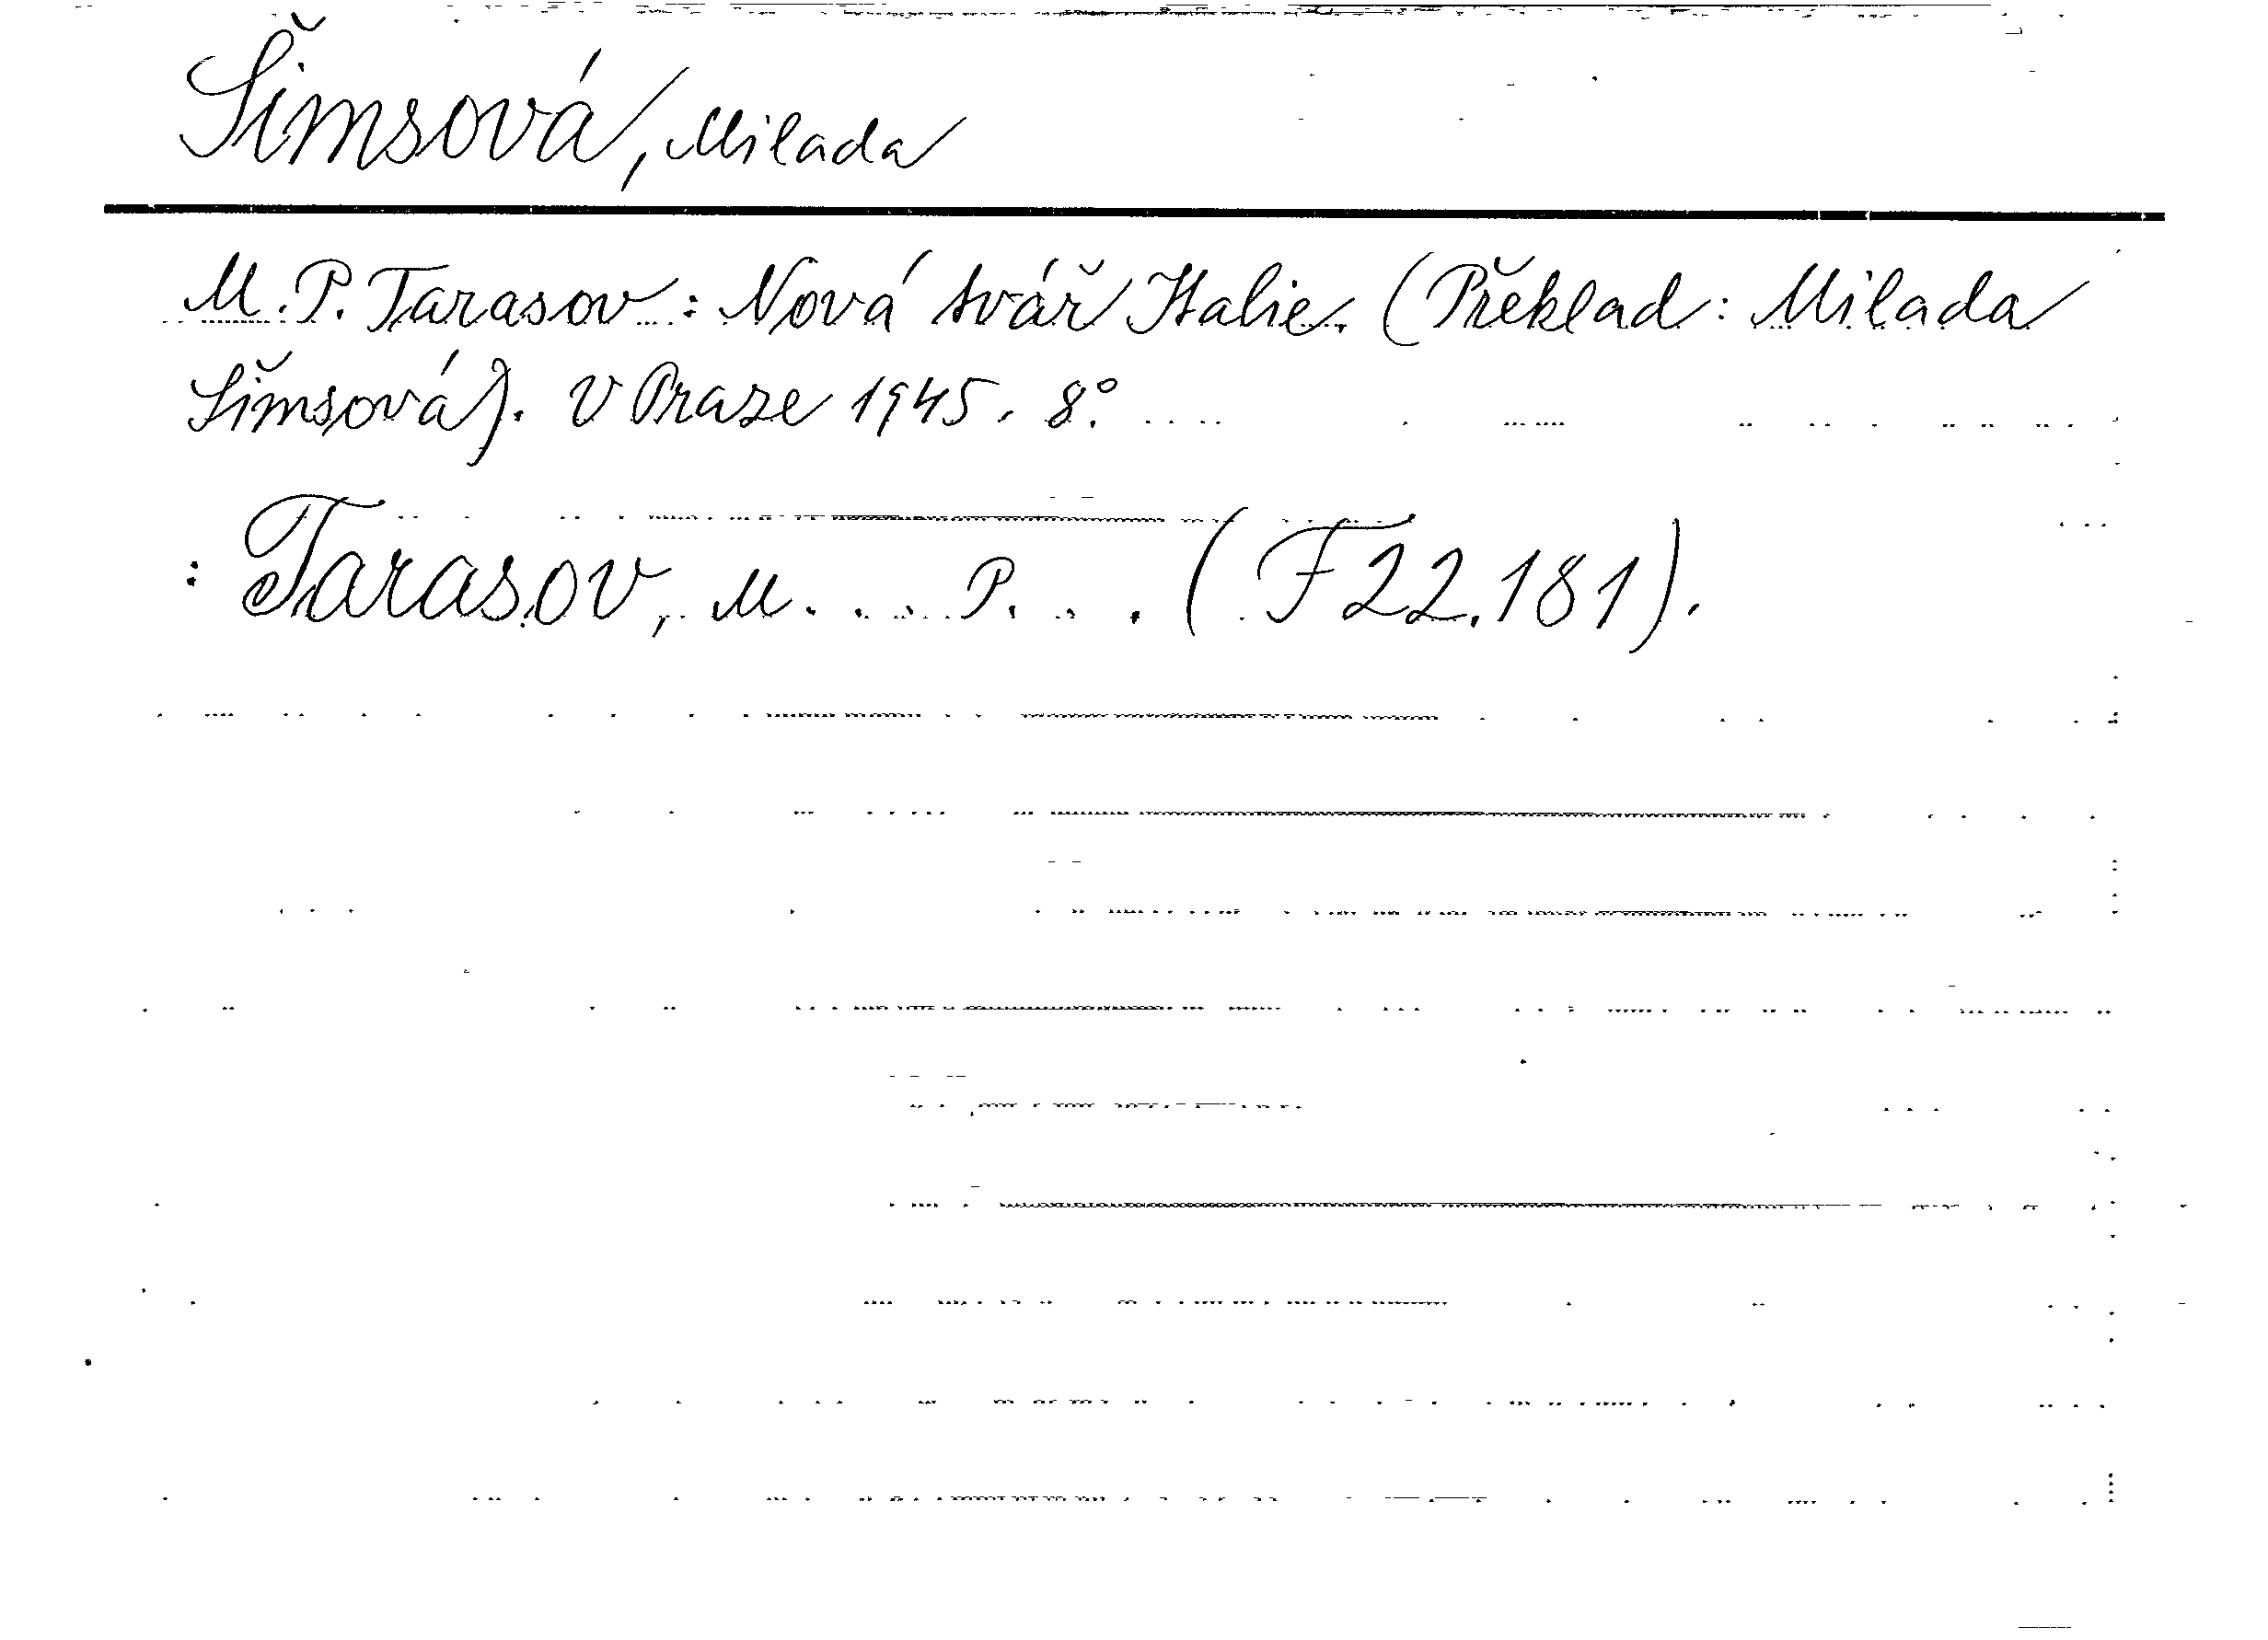 Šimsová, Milada
M. P. Tarasov : Nová tvář Italie. (Překlad : Milada
Šimsová). V Praze 1945. 8°.
: Tarasov, M. . . . P. . . . (F 22.181).